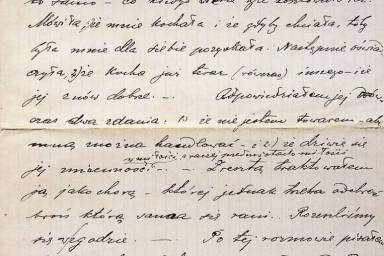 to samo — co kiedyś
Mówiła, że mnie kochała i że gdyby chciała, toby
była mnie dla siebie pozyskała. Następnie oświad-
czyła, że kocha już teraz (również) innego — i że
jej z nim dobrze. — Odpowiedziałem jej
oraz dwa zdania: 1) że nie jestem towarem — aby
mną można handlować — i 2) że dziwię się
w miłości, a raczej przedmiotach miłości
jej zmienności — — Zresztą traktowałem
ją jako chorą — której jednak trzeba odebrać
broń którą sama się rani. Rozeszliśmy
się w zgodzie. — Po tej rozmowie pisałem